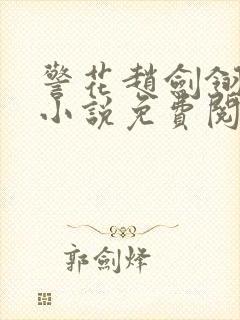 警花趙劍釵
小說免費閱
郭劍烽